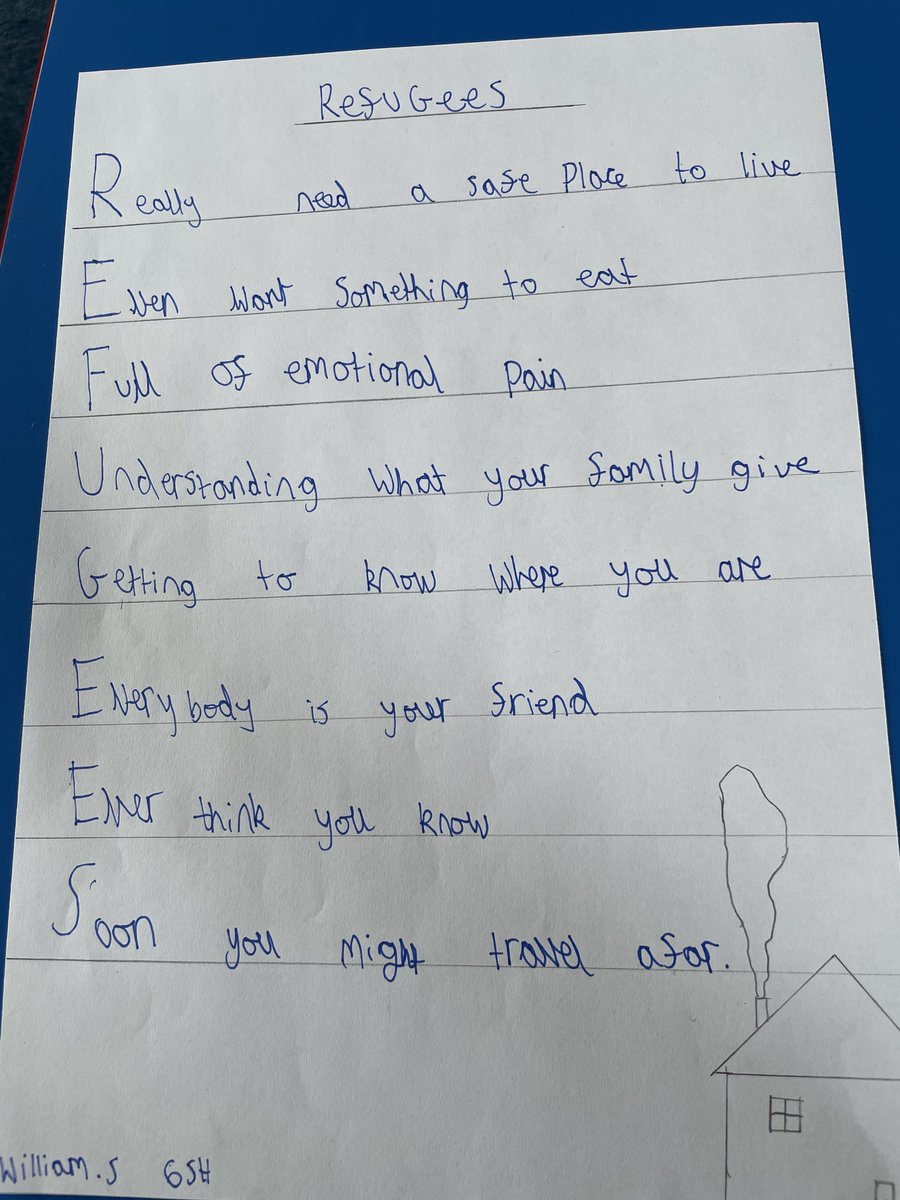 Refugees
Really need a safe place to live
Even want something to eat
Full of emotional pain
Understanding what your family give
Getting to know where you are
Everybody is your friend
Ever think you know
Soon you might travel afar.
William.S 6SH